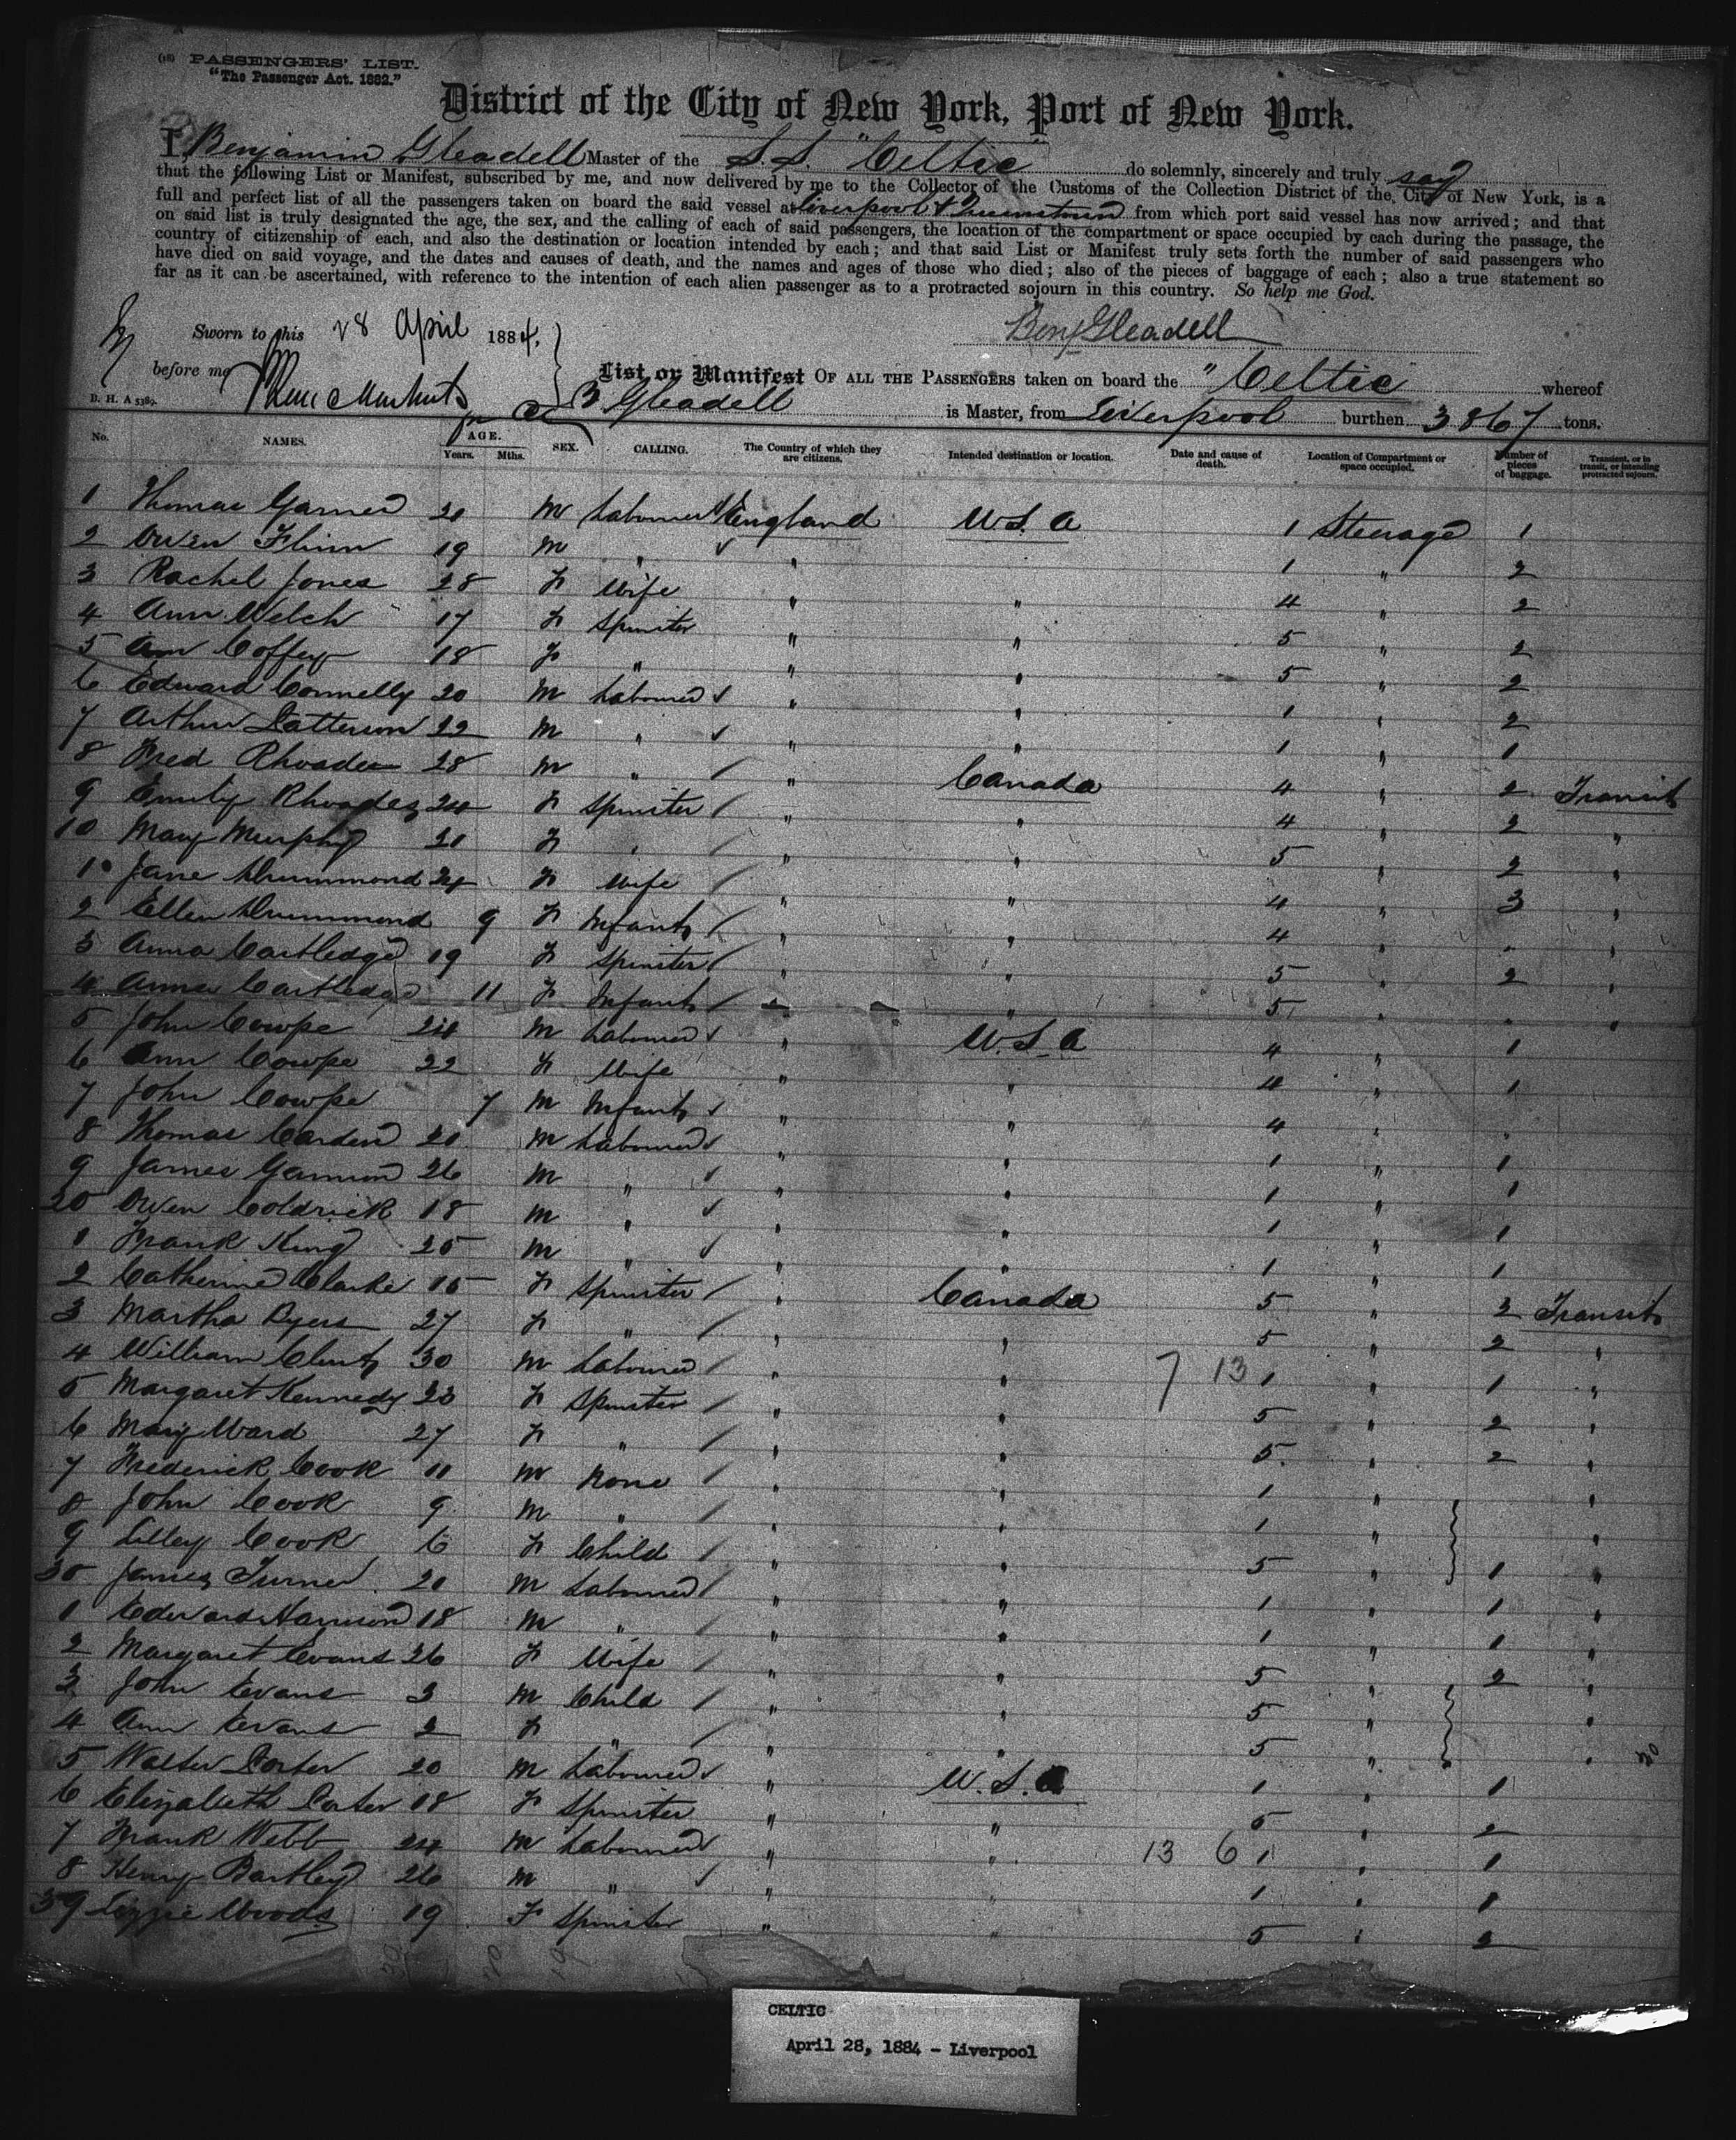 (18) PASSENGERS' LIST.
"The Passenger Act. 1882."
District of the City of New York, Port of New York.
I, Benjamin Gleadell Master of the S.S. "Celtic" do solemnly, sincerely and truly say
that the following List or Manifest, subscribed by me, and now delivered by me to the Collector of the Customs of the Collection District of the City of New York, is a
full and perfect list of all the passengers taken on board the said vessel at Liverpool & Queenstown from which port said vessel has now arrived; and that
on said list is truly designated the age, the sex, and the calling of each of said passengers, the location of the compartment or space occupied by each during the passage, the
country of citizenship of each, and also the destination or location intended by each; and that said List or Manifest truly sets forth the number of said passengers who
have died on said voyage, and the dates and causes of death, and the names and ages of those who died; also of the pieces of baggage of each; also a true statement so
far as it can be ascertained, with reference to the intention of each alien passenger as to a protracted sojourn in this country. So help me God.
Sworn to this 28 April 1884, Benj Gleadell
before me List or Manifest OF ALL THE PASSENGERS taken on board the "Celtic" whereof
D. H. A 5389. B Gleadell is Master, from Liverpool burthen 3867 tons.
No. NAMES. AGE. Years. Mths. SEX. CALLING. The Country of which they are citizens. Intended destination or location. Date and cause of death. Location of Compartment or space occupied. Number of pieces of baggage. Transient, or in transit, or intending protracted sojourn.
1 Thomas Garner 20 M Labourer England U.S.A 1 Steerage 1
2 Owen Flinn 19 M " " 1 " 2
3 Rachel Jones 28 F Wife " " 4 " 2
4 Ann Welch 17 F Spinster " " 5 " 2
5 Ann Coffey 18 F " " " 5 " 2
6 Edward Connelly 20 M Labourer " " 1 " 2
7 Arthur Patterson 22 M " " " 1 " 1
8 Fred Rhoades 28 M " " Canada 4 " 2 Transit
9 Emily Rhoades 24 F Spinster " " 4 " 2 "
10 Mary Murphy 21 F " " " 5 " 2 "
1 Jane Drummond 24 F Wife " " 4 " 3 "
2 Ellen Drummond 9 F Infant " " 4 " " "
3 Anna Cartledge 19 F Spinster " " 5 " 2 "
4 Anna Cartledge 11 F Infant " " 5 " "
5 John Cowpe 24 M Labourer " U.S.A 4 " 1
6 Ann Cowpe 22 F Wife " " 4 " 1
7 John Cowpe 7 M Infant " " 4 "
8 Thomas Carden 20 M Labourer " " 1 " 1
9 James Gannon 26 M " " " 1 " 1
20 Owen Coldrick 18 M " " " 1 " 1
1 Frank King 25 M " " " 1 " 1
2 Catherine Clarke 15 F Spinster " Canada 5 " 2 Transit
3 Martha Dyers 27 F " " " 5 " 2 "
4 William 30 M Labourer " " 7 13 1 " 1 "
5 Margaret Kennedy 23 F Spinster " " 5 " 2 "
6 Mary Ward 27 F " " " 5 " 2 "
7 Frederick Cook 11 M None " " 1 " "
8 John Cook 9 M " " " 1 " "
9 Lilley Cook 6 F Child " " 5 " 1 "
30 James Turner 20 M Labourer " " 1 " 1 "
1 Edward Harrison 18 M " " " 1 " 1 "
2 Margaret Evans 26 F Wife " " 5 " 2 "
3 John Evans 3 M Child " " 5 " "
4 Ann Evans 2 F " " " 5 " "
5 Walter Porter 20 M Labourer " U.S.A 1 " 1
6 Elizabeth 18 F Spinster " " 5 " 2
7 Frank Webb 24 M Labourer " " 13 6 1 " 1
8 Henry Bartley 26 M " " " 1 " 1
39 Lizzie Woods 19 F Spinster " " 5 " 2
CELTIC
April 28, 1884 - Liverpool